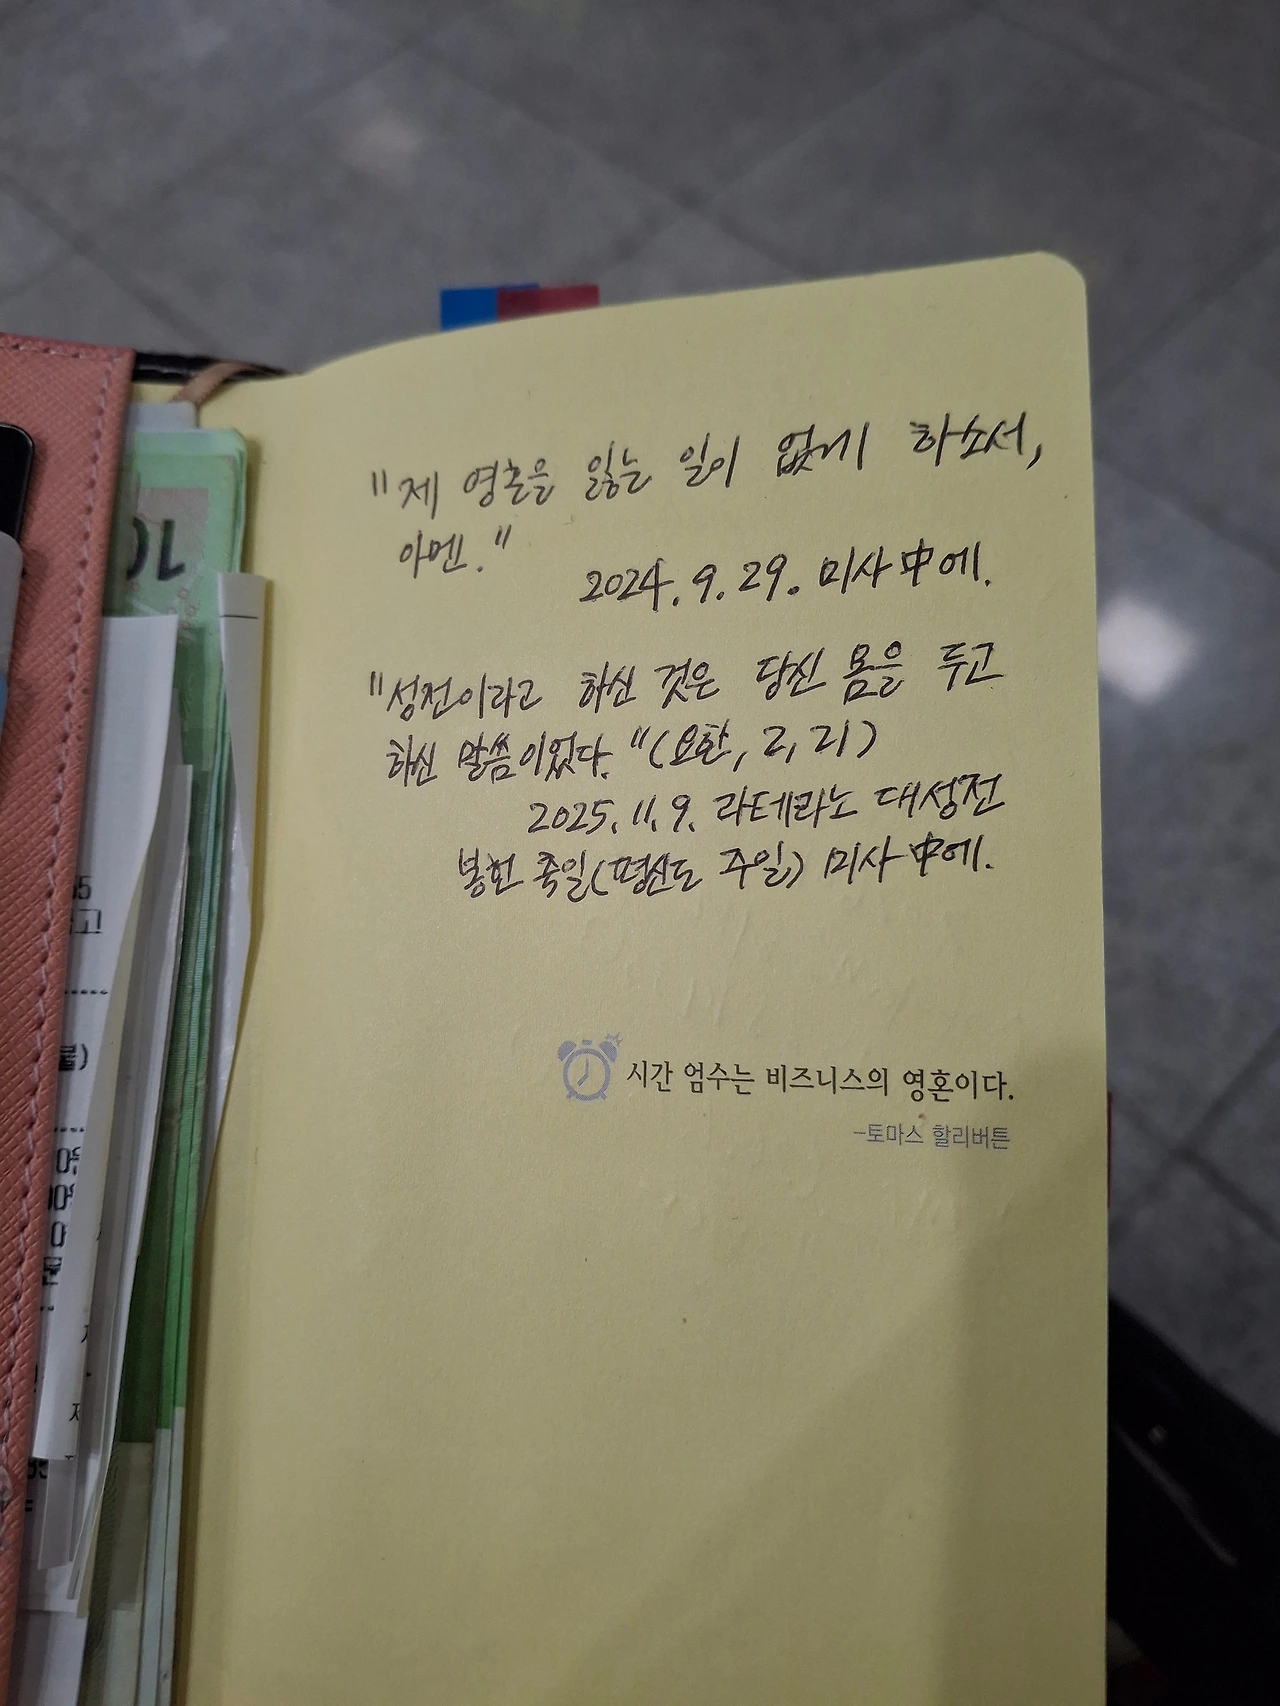 "제 영혼을 잃는 일이 없게 하소서,
아멘."
2024. 9. 29. 미사 中에.
"성전이라고 하신 것은 당신 몸을 두고
하신 말씀이었다."(요한, 2, 21)
2025. 11. 9. 라테라노 대성전
봉헌 축일(평신도 주일) 미사 中에.
시간 엄수는 비즈니스의 영혼이다.
-토마스 할리버튼